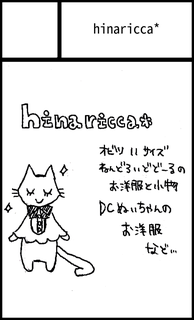 hinaricca*
hinaricca*
オビツ11サイズ
ねんどろいどどーるの
お洋服と小物
DCぬいちゃんの
お洋服
など…